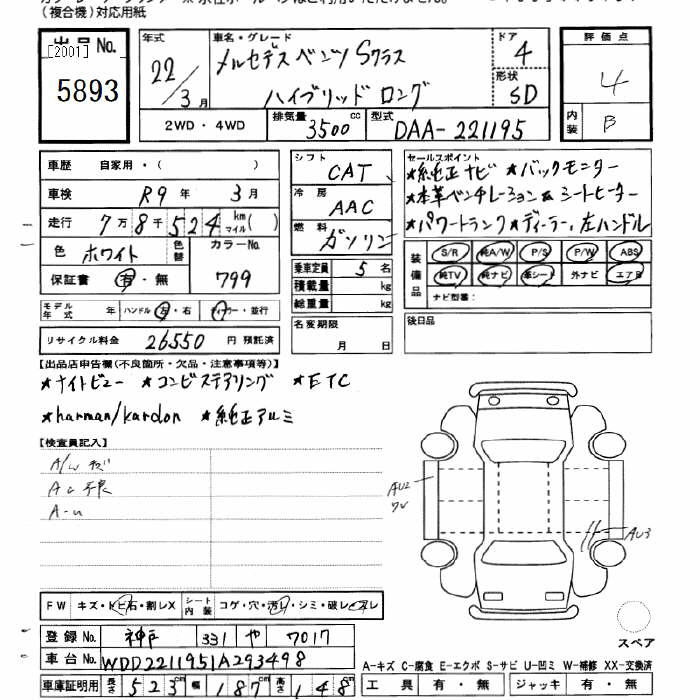 (複合機)対応用紙
出品No.
[2001]
5893
年式
22/3月
車名・グレード
メルセデスベンツ Sクラス
ハイブリッド ロング
ドア
4
形状
SD
評価点
4
内装
B
2WD・4WD
排気量
3500cc
型式
DAA-221195
車歴 自家用・( )
車検 R9年 3月
走行 7万8千524 km マイル( )
色 ホワイト 色替 カラーNo.
保証書 有・無 799
モデル年式 年 ハンドル 左・右 ディーラー・並行
リサイクル料金 26550 円 預託済
シフト CAT
冷房 AAC
燃料 ガソリン
乗車定員 5名
積載量 kg
総重量 kg
名変期限
月 日
セールスポイント
★純正ナビ ★バックモニター
★本革ベンチレーション&シートヒーター
★パワートランク★ディーラー、左ハンドル
装備品
S/R 純A/W P/S P/W ABS
純TV 純ナビ 革シート 外ナビ エアB
ナビ型番:
後日品
【出品店申告欄(不良箇所・欠品・注意事項等)】
★ナイトビュー ★コンビステアリング ★ETC
★harman/kardon ★純正アルミ
【検査員記入】
A/W キズ
A-u
AU2
AU3
FW キズ・トビ石・割レX シート内装 コゲ・穴・汚レ・シミ・破レ・スレ
登録No. 神戸 331 や 7017
車台No. WDD2211951A293498
車庫証明用 長さ 523cm 幅 187cm 高さ 148cm
スペア
A-キズ C-腐食 E-エクボ S-サビ U-凹ミ W-補修 XX-交換済
工具 有・無 ジャッキ 有・無